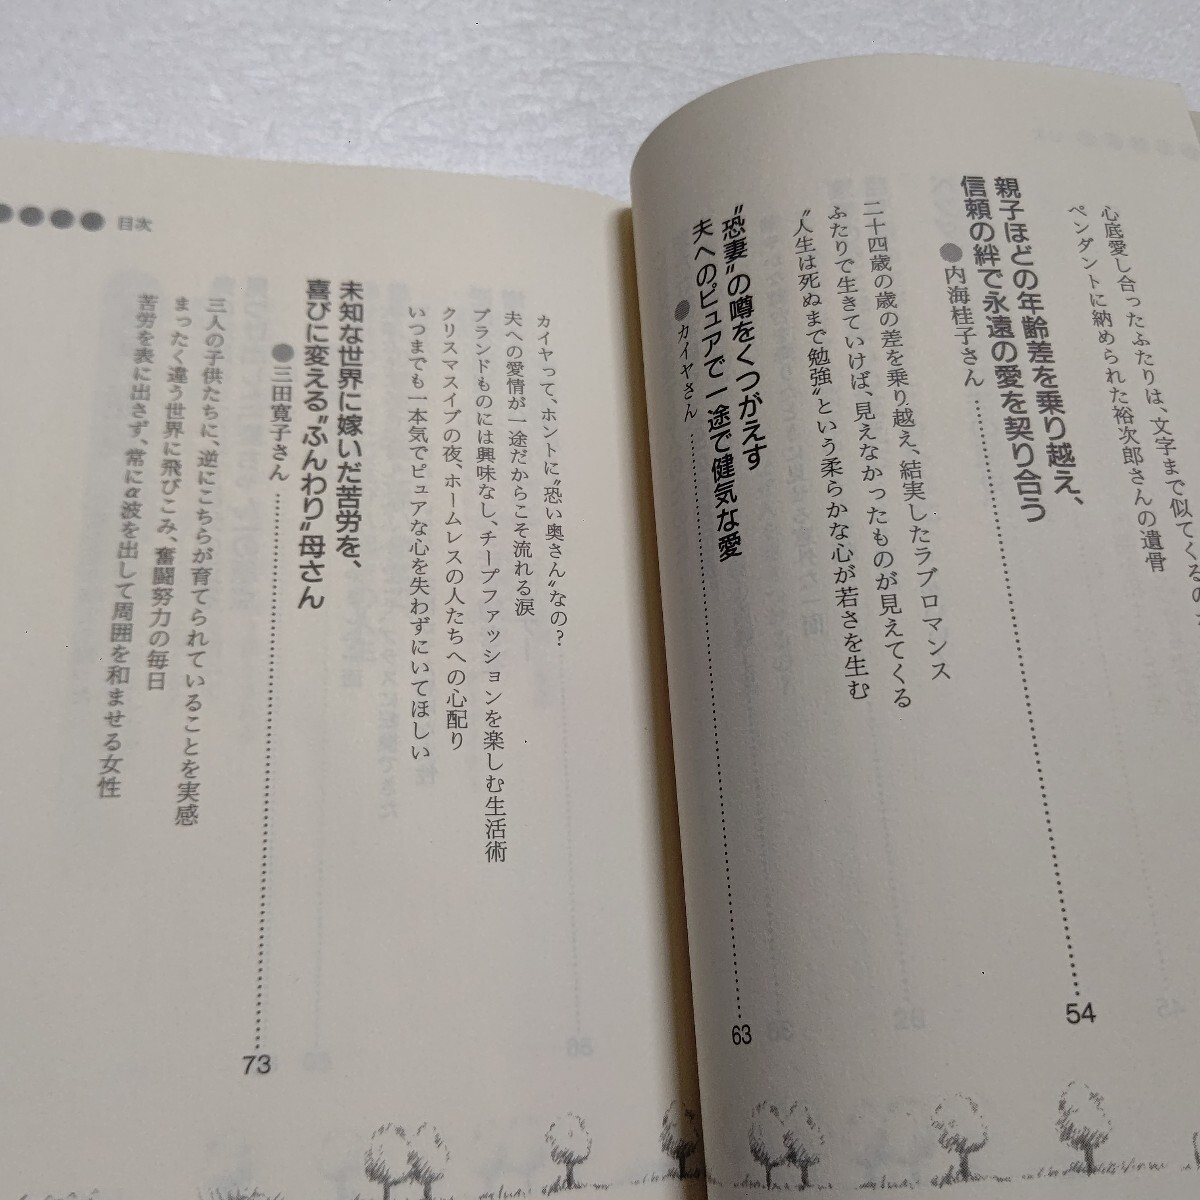 心底愛し合ったふたりは、文字まで似てくるの
ペンダントに納められた裕次郎さんの遺骨
親子ほどの年齢差を乗り越え、
信頼の絆で永遠の愛を契り合う
●内海桂子さん 54
二十四歳の歳の差を乗り越え、結実したラブロマンス
ふたりで生きていけば、見えなかったものが見えてくる
〝人生は死ぬまで勉強〟という柔らかな心が若さを生む
〝恐妻〟の噂をくつがえす
夫へのピュアで一途で健気な愛
●カイヤさん 63
目次
カイヤって、ホントに〝恐い奥さん〟なの?
夫への愛情が一途だからこそ流れる涙
ブランドものには興味なし、チープファッションを楽しむ生活術
クリスマスイブの夜、ホームレスの人たちへの心配り
いつまでも一本気でピュアな心を失わずにいてほしい
未知な世界に嫁いだ苦労を、
喜びに変える〝ふんわり〟母さん
●三田寛子さん 73
三人の子供たちに、逆にこちらが育てられていることを実感
まったく違う世界に飛びこみ、奮闘努力の毎日
苦労を表に出さず、常にα波を出して周囲を和ませる女性